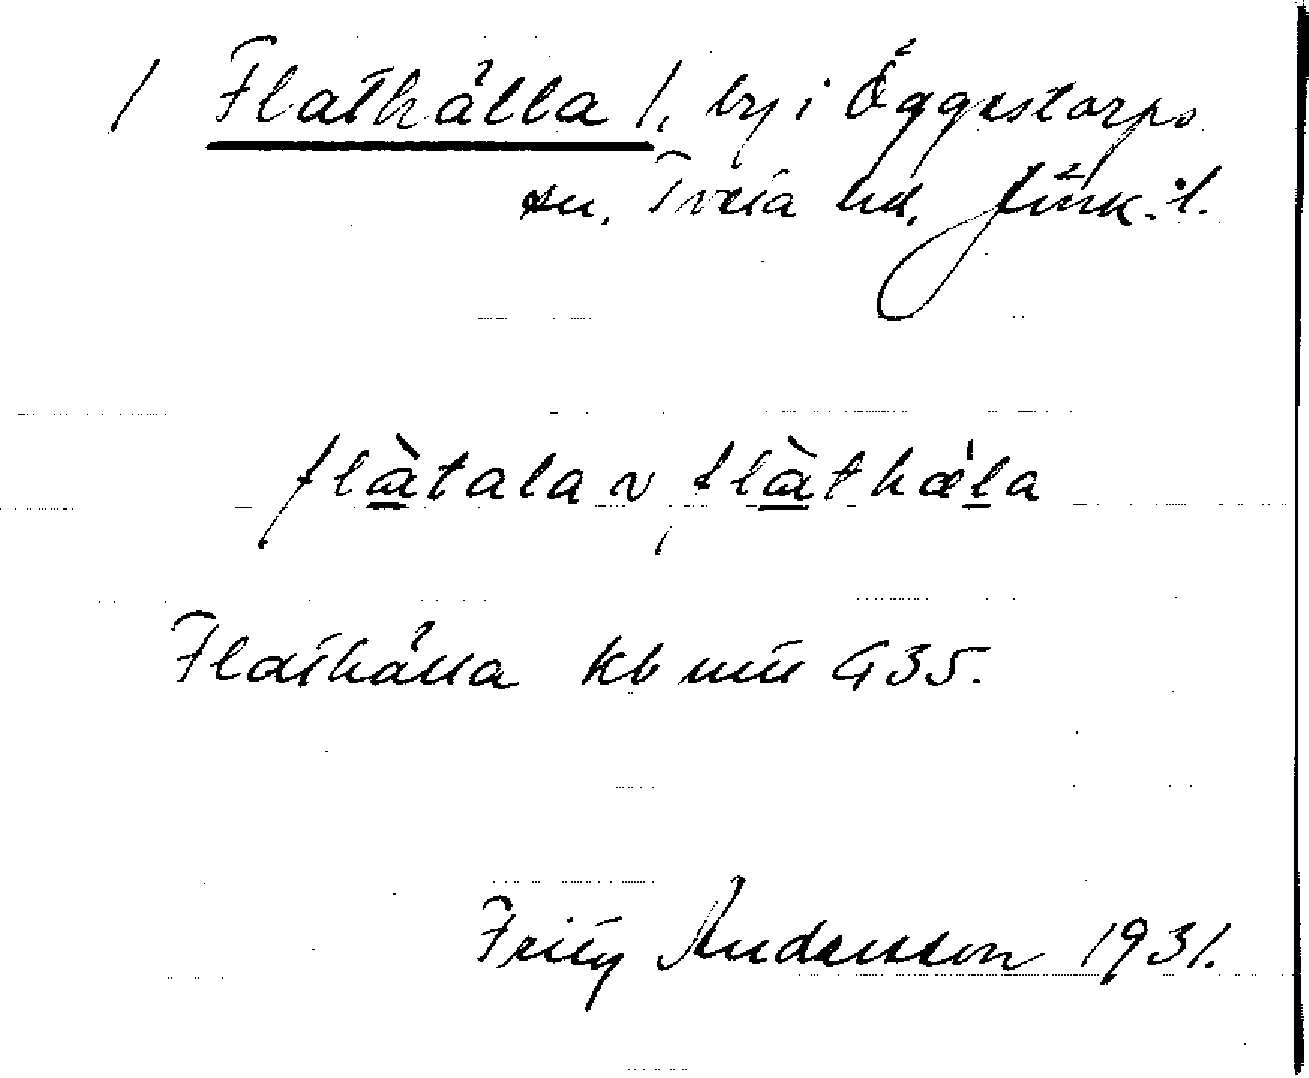 / Flathälla /, by i Öggestorps
sn. Tveta hd. Jönk. l.
flàtala v, flàthæ̍la
Flathälla kb mtl 435.
Fritz Andersson 1931.